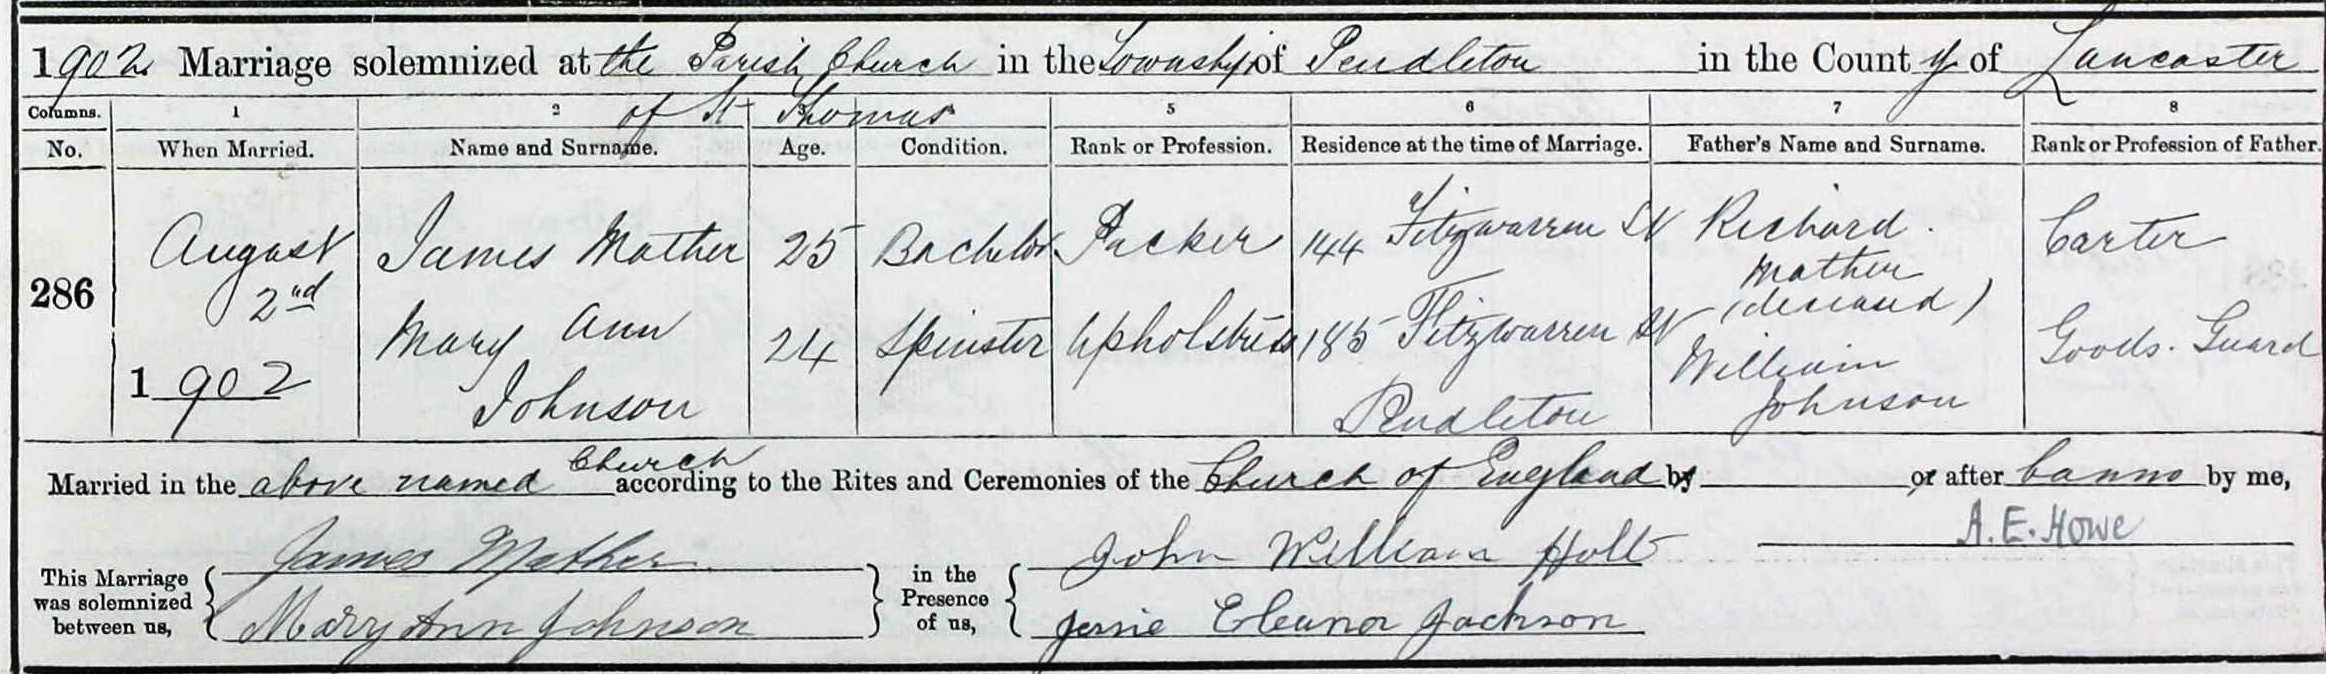 1902. Marriage solemnized at the Parish Church in the Township of Pendleton in the County of Lancaster
of St Thomas
Columns. 1 2 3 4 5 6 7 8
No. When Married. Name and Surname. Age. Condition. Rank or Profession. Residence at the time of Marriage. Father's Name and Surname. Rank or Profession of Father.
286 August 2nd 1902 James Mather 25 Bachelor Packer 144 Fitzwarren St Richard Mather (deceased) Carter
Mary Ann Johnson 24 Spinster Upholstress 185 Fitzwarren St Pendleton William Johnson Goods. Guard
Married in the above named Church according to the Rites and Ceremonies of the Church of England by or after banns by me,
A. E. Howe
This Marriage was solemnized between us, James Mather in the Presence of us, John William Holt
Mary Ann Johnson Jessie Eleanor Jackson